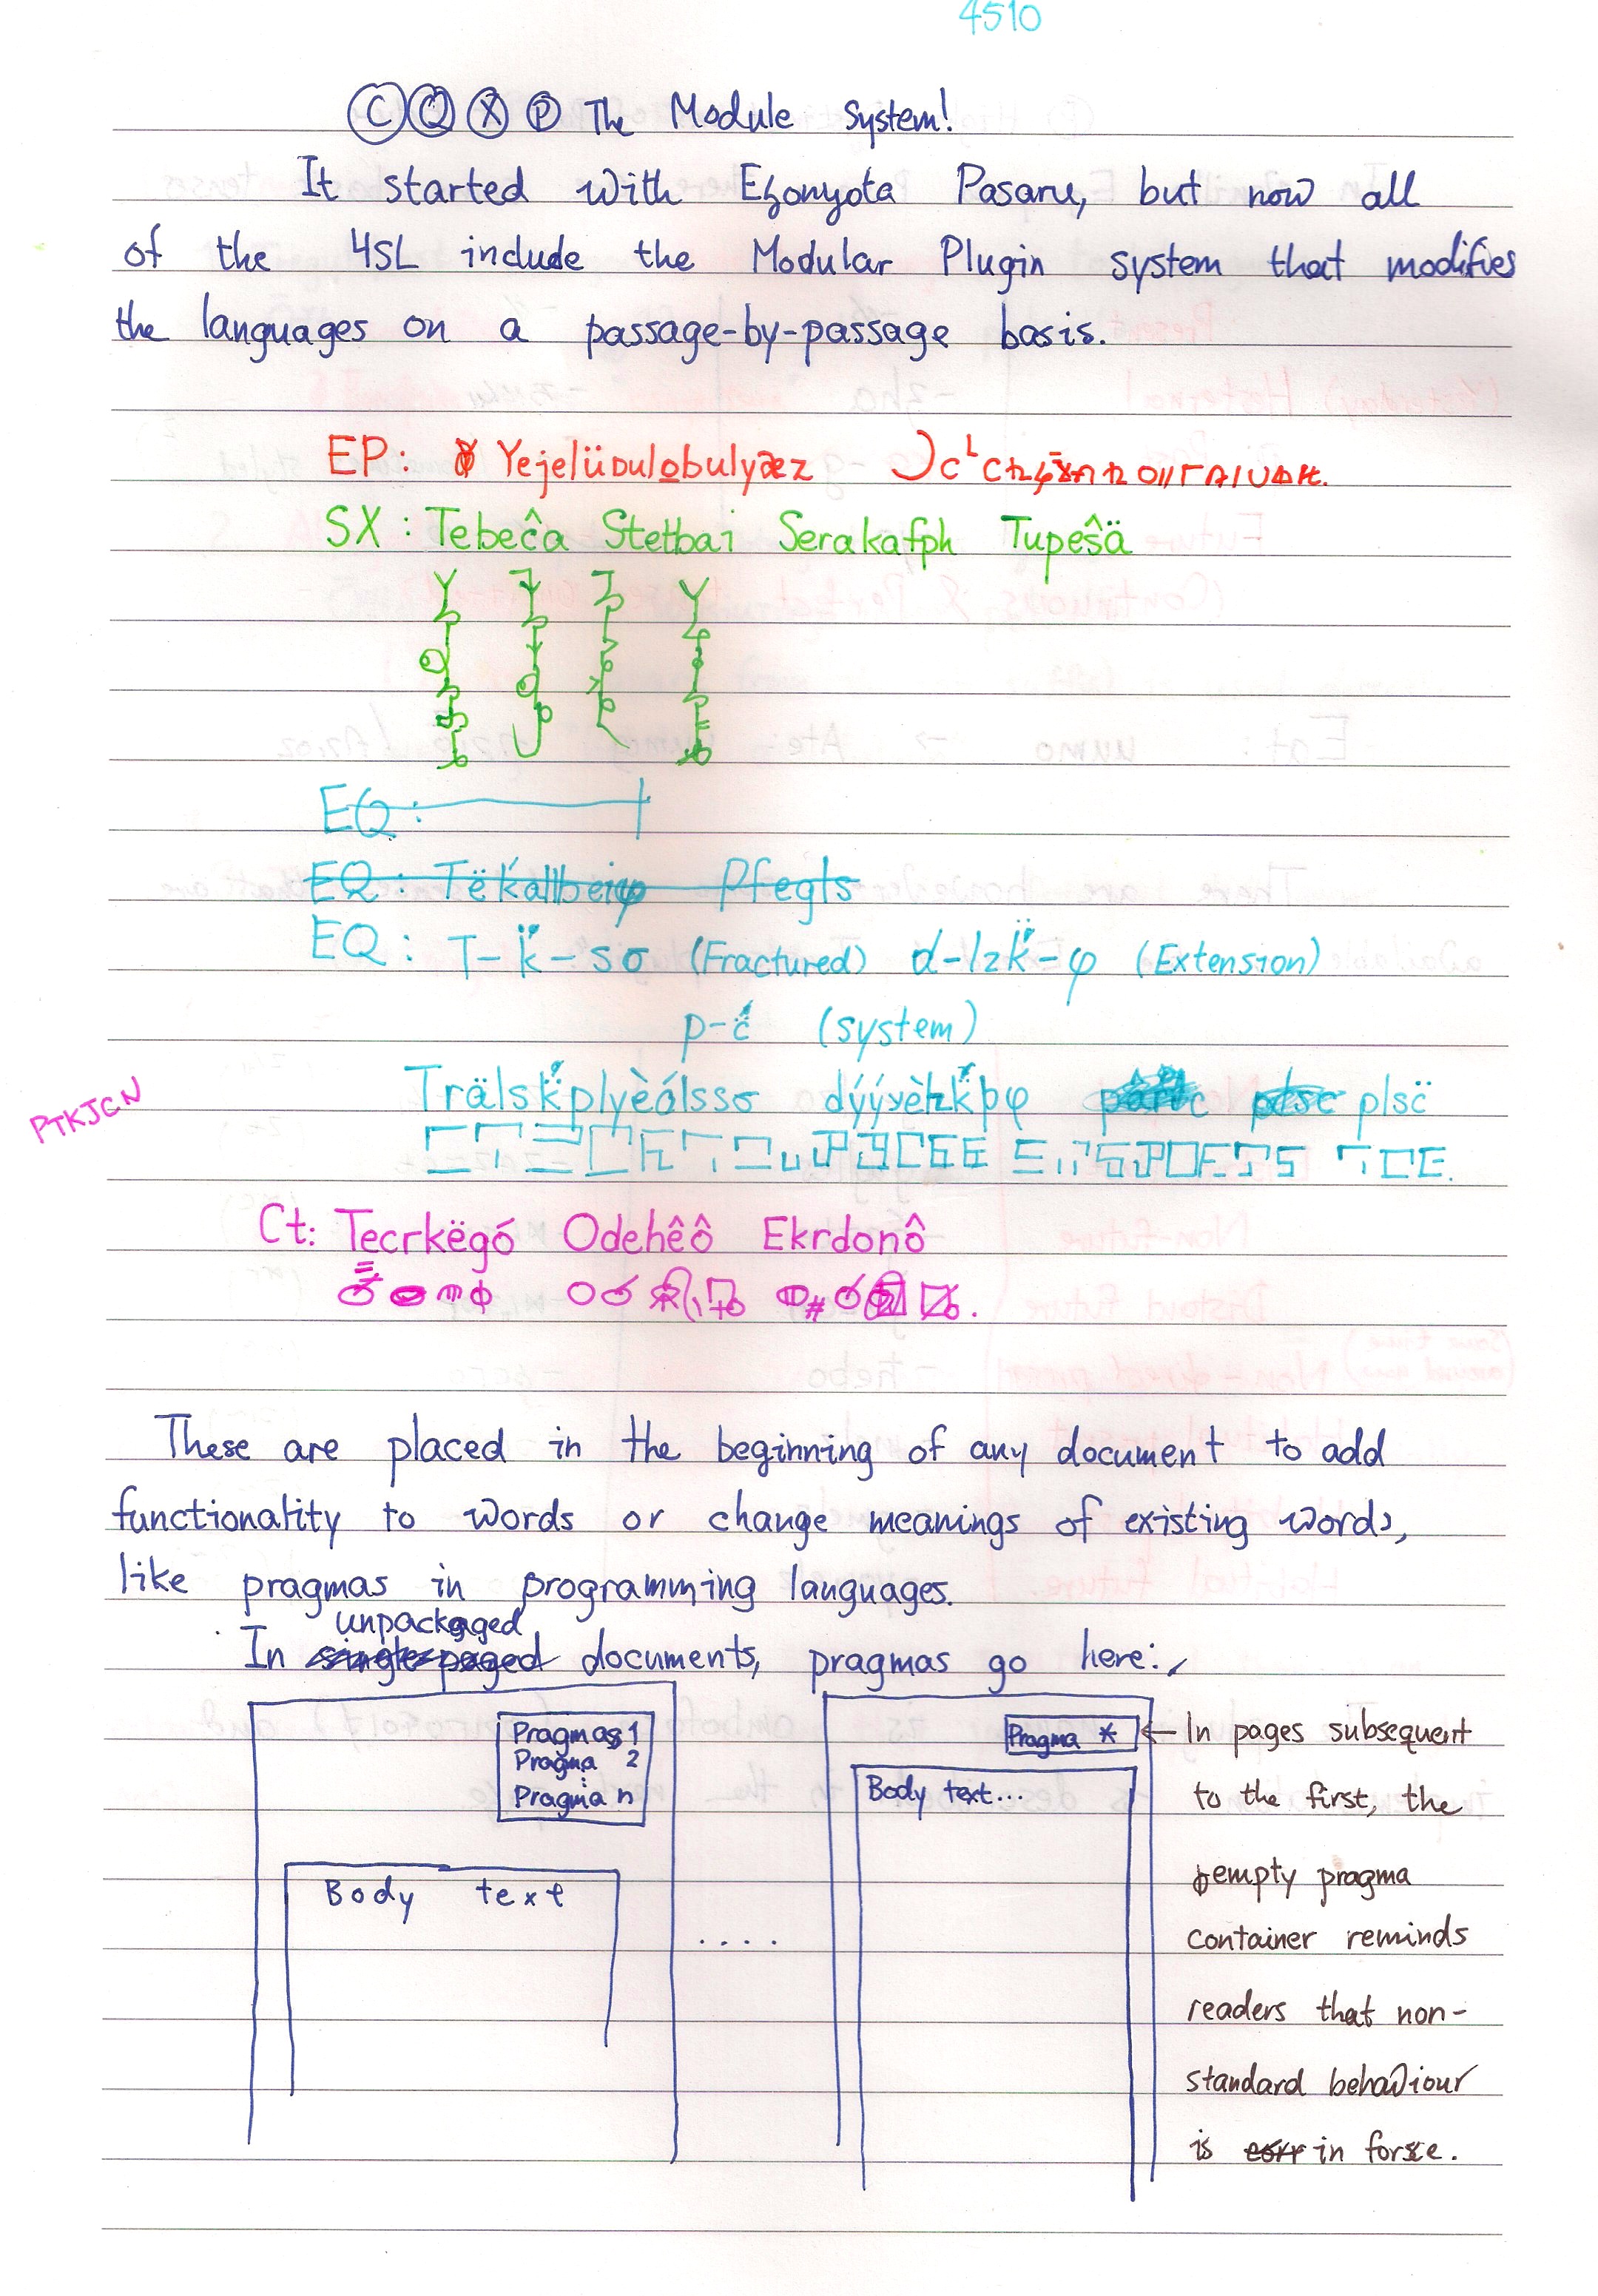 4510
Ⓒ Ⓠ Ⓧ Ⓟ The Module System!
It started with Ebonyota Pasaru, but now all
of the 4SL include the Modular Plugin system that modifies
the languages on a passage-by-passage basis.
EP: Yejelüdulobulyæz
SX: Tebeĉa Stetbai Serakafph Tupeŝä
EQ:
EQ: Pfegls
EQ: T-k̈-sσ (Fractured) d-lzk̈-φ (Extension)
p-c̈ (system)
PTKJCN
Trälsk̈plyèálssσ plsc̈
Ct: Tecrkëgó Odehêô Ekrdonô
These are placed in the beginning of any document to add
functionality to words or change meanings of existing words,
like pragmas in programming languages.
unpackaged
In single-paged documents, pragmas go here:
Pragmas 1
Pragma 2
⋮
Pragma n
Body text
....
Pragma *
Body text...
← In pages subsequent
to the first, the
empty pragma
container reminds
readers that non-
standard behaviour
is in forse.